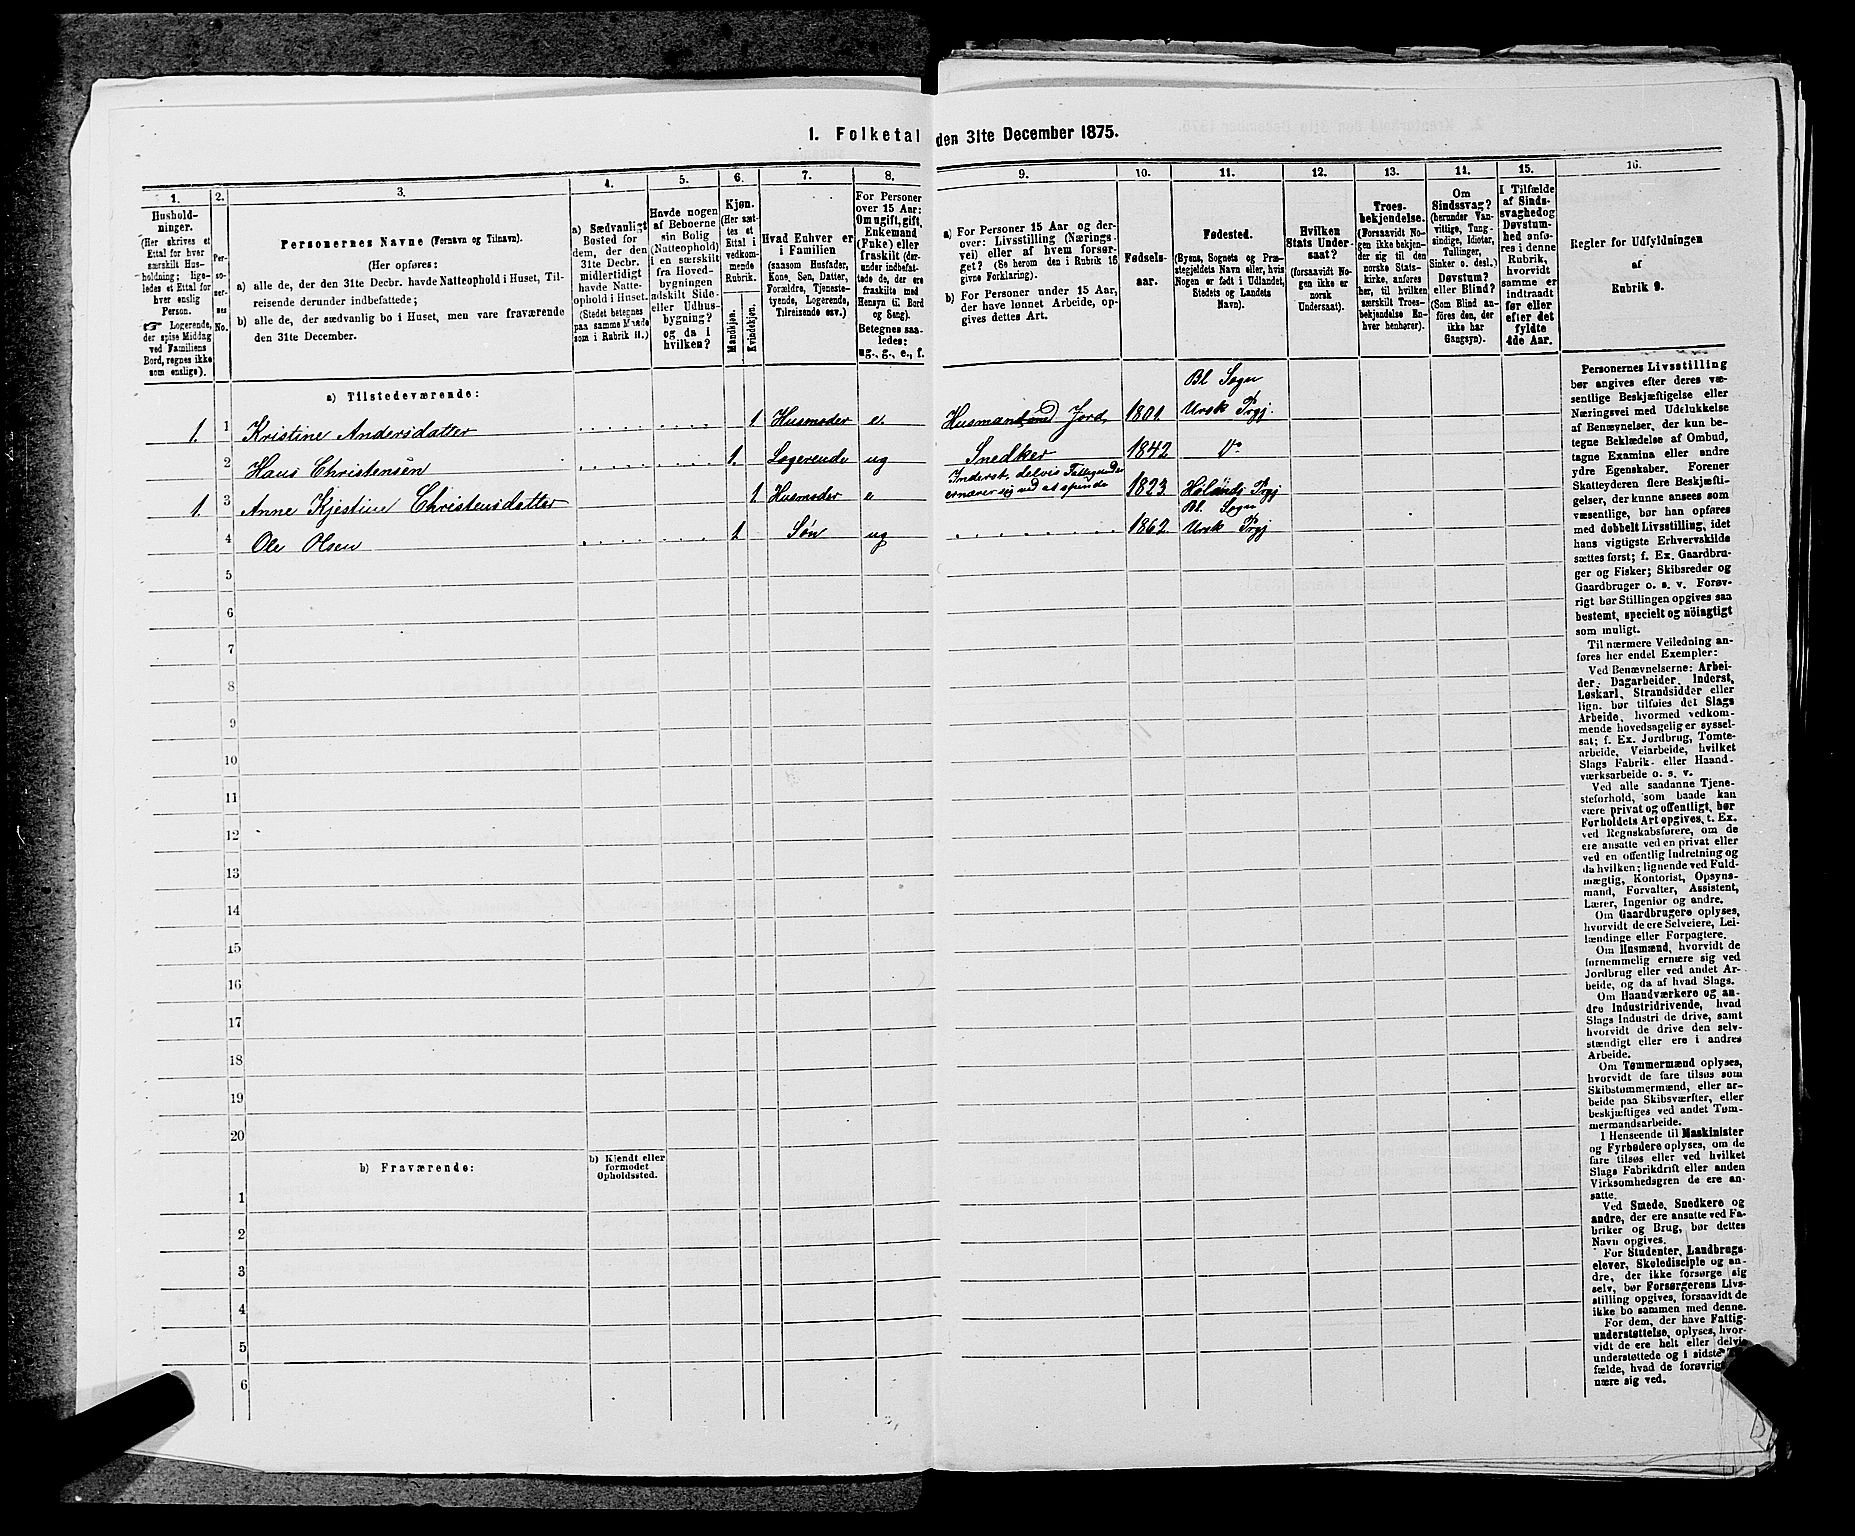 1. Folketal den 31te December 1875.
1.
Hushold-
ninger.
(Her skrives et
Ettal for hver
særskilt Hus-
holdning; lige-
ledes et Ettal for
hver enslig
Person.
☞ Logerende,
der spise Middag
ved Familiens
Bord, regnes ikke
som enslige).
2.
Per-
so-
ner-
nes
No.
3.
Personernes Navne (Fornavn og Tilnavn).
(Her opføres:
a) alle de, der den 31te Decbr. havde Natteophold i Huset, Til-
reisende derunder indbefattede;
b) alle de, der sædvanlig bo i Huset, men vare fraværende
den 31te December.
4.
a) Sædvanligt
Bosted for
dem, der den
31te Decbr.
midlertidigt
havde Natte-
ophold i Huset.
(Stedet betegnes
paa samme Maade
som i Rubrik 11.)
5.
Havde nogen
af Beboerne
sin Bolig
(Natteophold)
i en særskilt
fra Hoved-
bygningen
adskilt Side-
eller Udhus-
bygning?
og da i
hvilken?
6.
Kjøn.
(Her sæt-
tes et
Ettal i
vedkom-
mende
Rubrik.
Mandkjøn.
Kvindekjøn.
7.
Hvad Enhver er
i Familien
(saasom Husfader,
Kone, Søn, Datter,
Forældre, Tjeneste-
tyende, Logerende,
Tilreisende osv.)
8.
For Personer
over 15 Aar:
Om ugift, gift,
Enkemand
(Enke) eller
fraskilt (der-
under indbefat-
tede de, der ere
fraskilte med
Hensyn til Bord
og Seng).
Betegnes saa-
ledes:
ug., g., e., f.
9.
a) For Personer 15 Aar og der-
over: Livsstilling (Nærings-
vei) eller af hvem forsør-
get? (Se herom den i Rubrik 16
givne Forklaring).
b) For Personer under 15 Aar,
der have lønnet Arbeide, op-
gives dettes Art.
10.
Fødsels-
aar.
11.
Fødested.
(Byens, Sognets og Præ-
stegjeldets Navn eller, hvis
Nogen er født i Udlandet,
Stedets og Landets
Navn).
12.
Hvilken
Stats Under-
saat?
(forsaavidt No-
gen ikke er
norsk
Undersaat).
13.
Troes-
bekjendelse.
(Forsaavidt No-
gen ikke bekjen-
der sig til den
norske Stats-
kirke, anføres
her, til hvilken
særskilt Troes-
bekjendelse En-
hver henhører).
14.
Om
Sindssvag?
(herunder Van-
vittige, Tung-
sindige, Idioter,
Tullinger,
Sinker o. desl.)
Døvstum?
eller Blind?
(Som Blind an-
føres den, der
ikke har
Gangsyn).
15.
I Tilfælde
af Sinds-
svaghed og
Døvstum-
hed anfø-
res i denne
Rubrik,
hvorvidt
samme er
indtraadt
før eller
efter det
fyldte
4de Aar.
16.
Regler for Udfyldningen
af
Rubrik 9.
a) Tilstedeværende:
1. 1 Kristine Andersdatter 1 Husmoder e. Husmand med Jord, 1801 Bl Sogn
Ursk Prgj.
2 Hans Christensen 1. Logerende ug Snedker 1842 Do
1. 3 Anne Kjestine Christensdatter 1 Husmoder e Inderst, delvis Fattigunder
ernærer sig ved at spinde 1823 Hølands Prgj
4 Ole Olsen 1 Søn ug 1862 Bl. Sogn
Ursk Prgj
5
6
7
8
9
10
11
12
13
14
15
16
17
18
19
20
b) Fraværende:
b) Kjendt eller
formodet
Opholdssted.
1
2
3
4
5
6
Personernes Livsstilling
bør angives efter deres væ-
sentlige Beskjæftigelse eller
Næringsvei med Udelukkelse
af Benævnelser, der kun be-
tegne Beklædelse af Ombud,
tagne Examina eller andre
ydre Egenskaber. Forener
Skatteyderen flere Beskjæfti-
gelser, der kunne ansees som
væsentlige, bør han opføres
med dobbelt Livsstilling, idet
hans vigtigste Erhvervskilde
sættes først; f. Ex. Gaardbru-
ger og Fisker; Skibsreder og
Gaardbruger o. s. v. Forøv-
rigt bør Stillingen opgives saa
bestemt, specielt og nöiagtigt
som muligt.
Til nærmere Veiledning an-
føres her endel Exempler:
Ved Benævnelserne: Arbei-
der, Dagarbeider, Inderst,
Løskarl, Strandsidder eller
lign. bør tilføies det Slags
Arbeide, hvormed vedkom-
mende hovedsagelig er syssel-
sat; f. Ex. Jordbrug, Tomte-
arbeide, Veiarbeide, hvilket
Slags Fabrik- eller Haand-
værksarbeide o. s. v.
Ved alle saadanne Tjene-
steforhold, som baade kan
være privat og offentligt, bør
Forholdets Art opgives, t. Ex.
ved Regnskabsførere, om de
ere ansatte ved en privat eller
ved en offentlig Indretning og
da hvilken; lignende ved Fuld-
mægtig, Kontorist, Opsyns-
mand, Forvalter, Assistent,
Lærer, Ingeniør og andre.
Om Gaardbrugere oplyses,
hvorvidt de ere Selveiere, Lei-
lændinge eller Forpagtere.
Om Husmænd, hvorvidt de
fornemmelig ernære sig ved
Jordbrug eller ved andet Ar-
beide, og da af hvad Slags.
Om Haandværkere og an-
dre Industridrivende, hvad
Slags Industri de drive, samt
hvorvidt de drive den selv-
stændigt eller ere i andres
Arbeide.
Om Tømmermænd oplyses,
hvorvidt de fare tilsøs som
Skibstømmermænd, eller ar-
beide paa Skibsværfter, eller
beskjæftiges ved andet Tøm-
mermandsarbeide.
I Henseende til Maskinister
og Fyrbødere oplyses, om de
fare tilsøs eller ved hvilket
Slags Fabrikdrift eller anden
Virksomhedsgren de ere an-
satte.
Ved Smede, Snedkere og
andre, der ere ansatte ved Fa-
briker og Brug, bør dettes
Navn opgives.
For Studenter, Landbrugs-
elever, Skoledisciple og an-
dre, der ikke forsørge sig
selv, bør Forsørgerens Livs-
stilling opgives, forsaavidt de
ikke bo sammen med denne.
For dem, der have Fattig-
understøttelse, oplyses, hvor-
vidt de ere helt eller delvis
understøttede og i sidste
fælde, hvad de forøvrigt
nære sig ved.